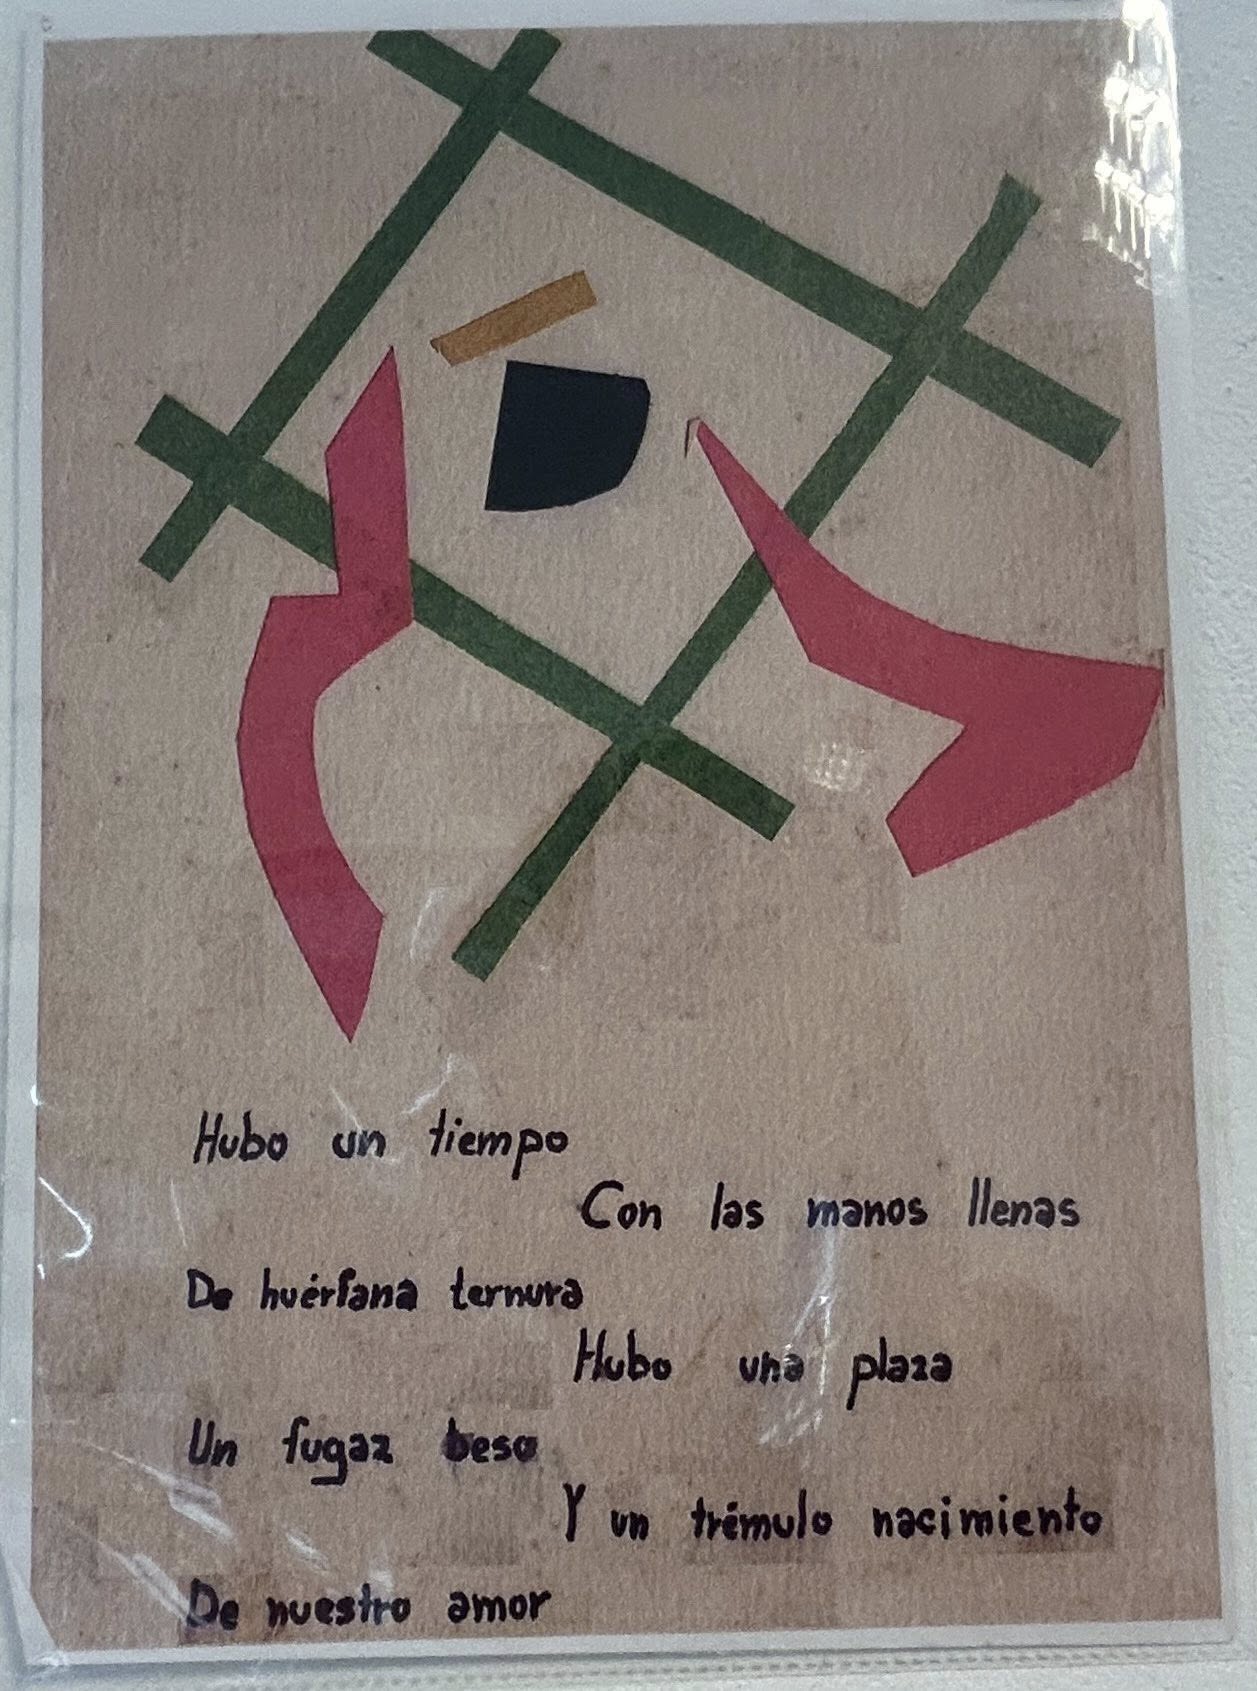 Hubo un tiempo
Con las manos llenas
De huérfana ternura
Hubo una plaza
Un fugaz beso
Y un trémulo nacimiento
De nuestro amor